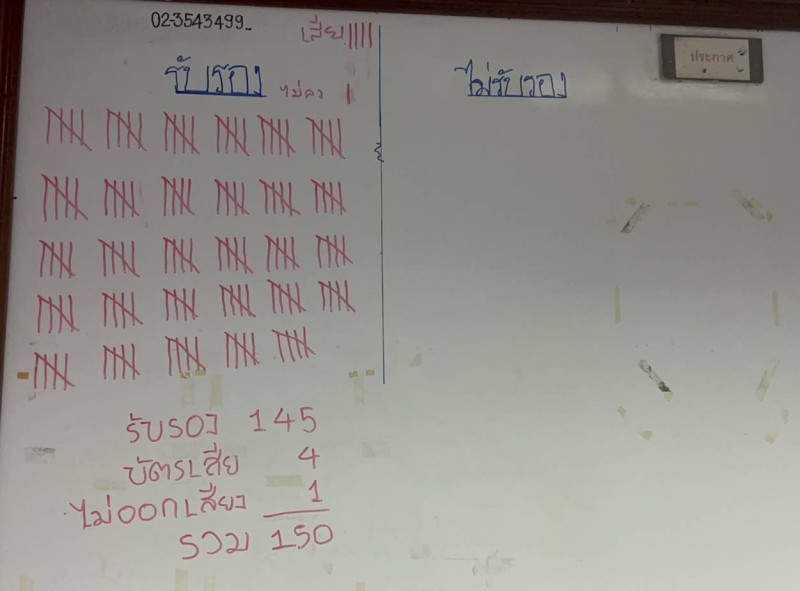 02-3543499_
เสีย ||||
รับรอง ไม่ลง |
ไม่รับรอง
ประกาศ
รับรอง 145
บัตรเสีย 4
ไม่ออกเสียง 1
รวม 150